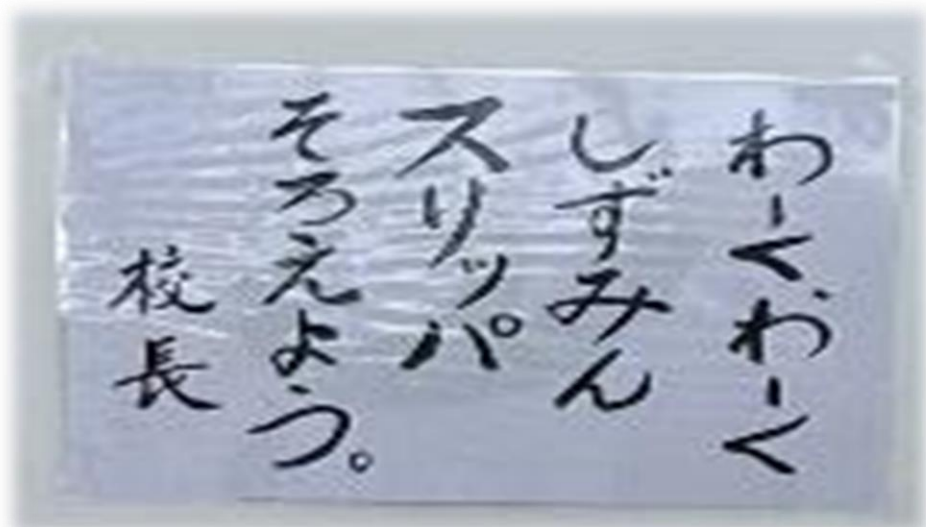 わーくわーく
しずみん
スリッパ
そろえよう。
校長